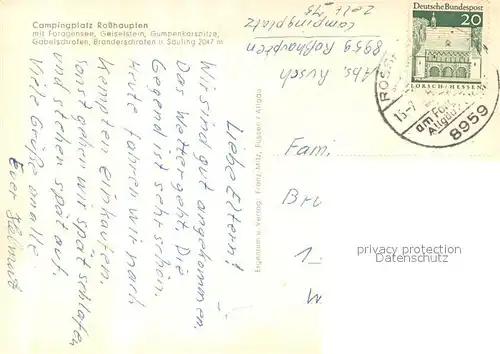 Campingplatz Roßhaupten
mit Forggensee, Geiselstein, Gumpenkarspitze,
Gabelschrofen, Branderschrofen u. Säuling 2047 m
Liebe Eltern!
Wir sind gut angekommen.
Das Wetter geht. Die
Gegend ist sehr schön.
Heute fahren wir nach
Kempten einkaufen.
Sonst gehen wir spät schlafen
und stehen spät auf.
Viele Grüße an alle
Euer Helmut
Eigentum u. Verlag: Franz Milz, Füssen / Allgäu
Abs.
8959 Roßhaupten
Campingplatz
Zelt 75
Deutsche Bundespost
20
LORSCH/HESSEN
8959
am
Allgäu
Fam.
privat.ansichtskarten-center.de
copyright privat-ac.de